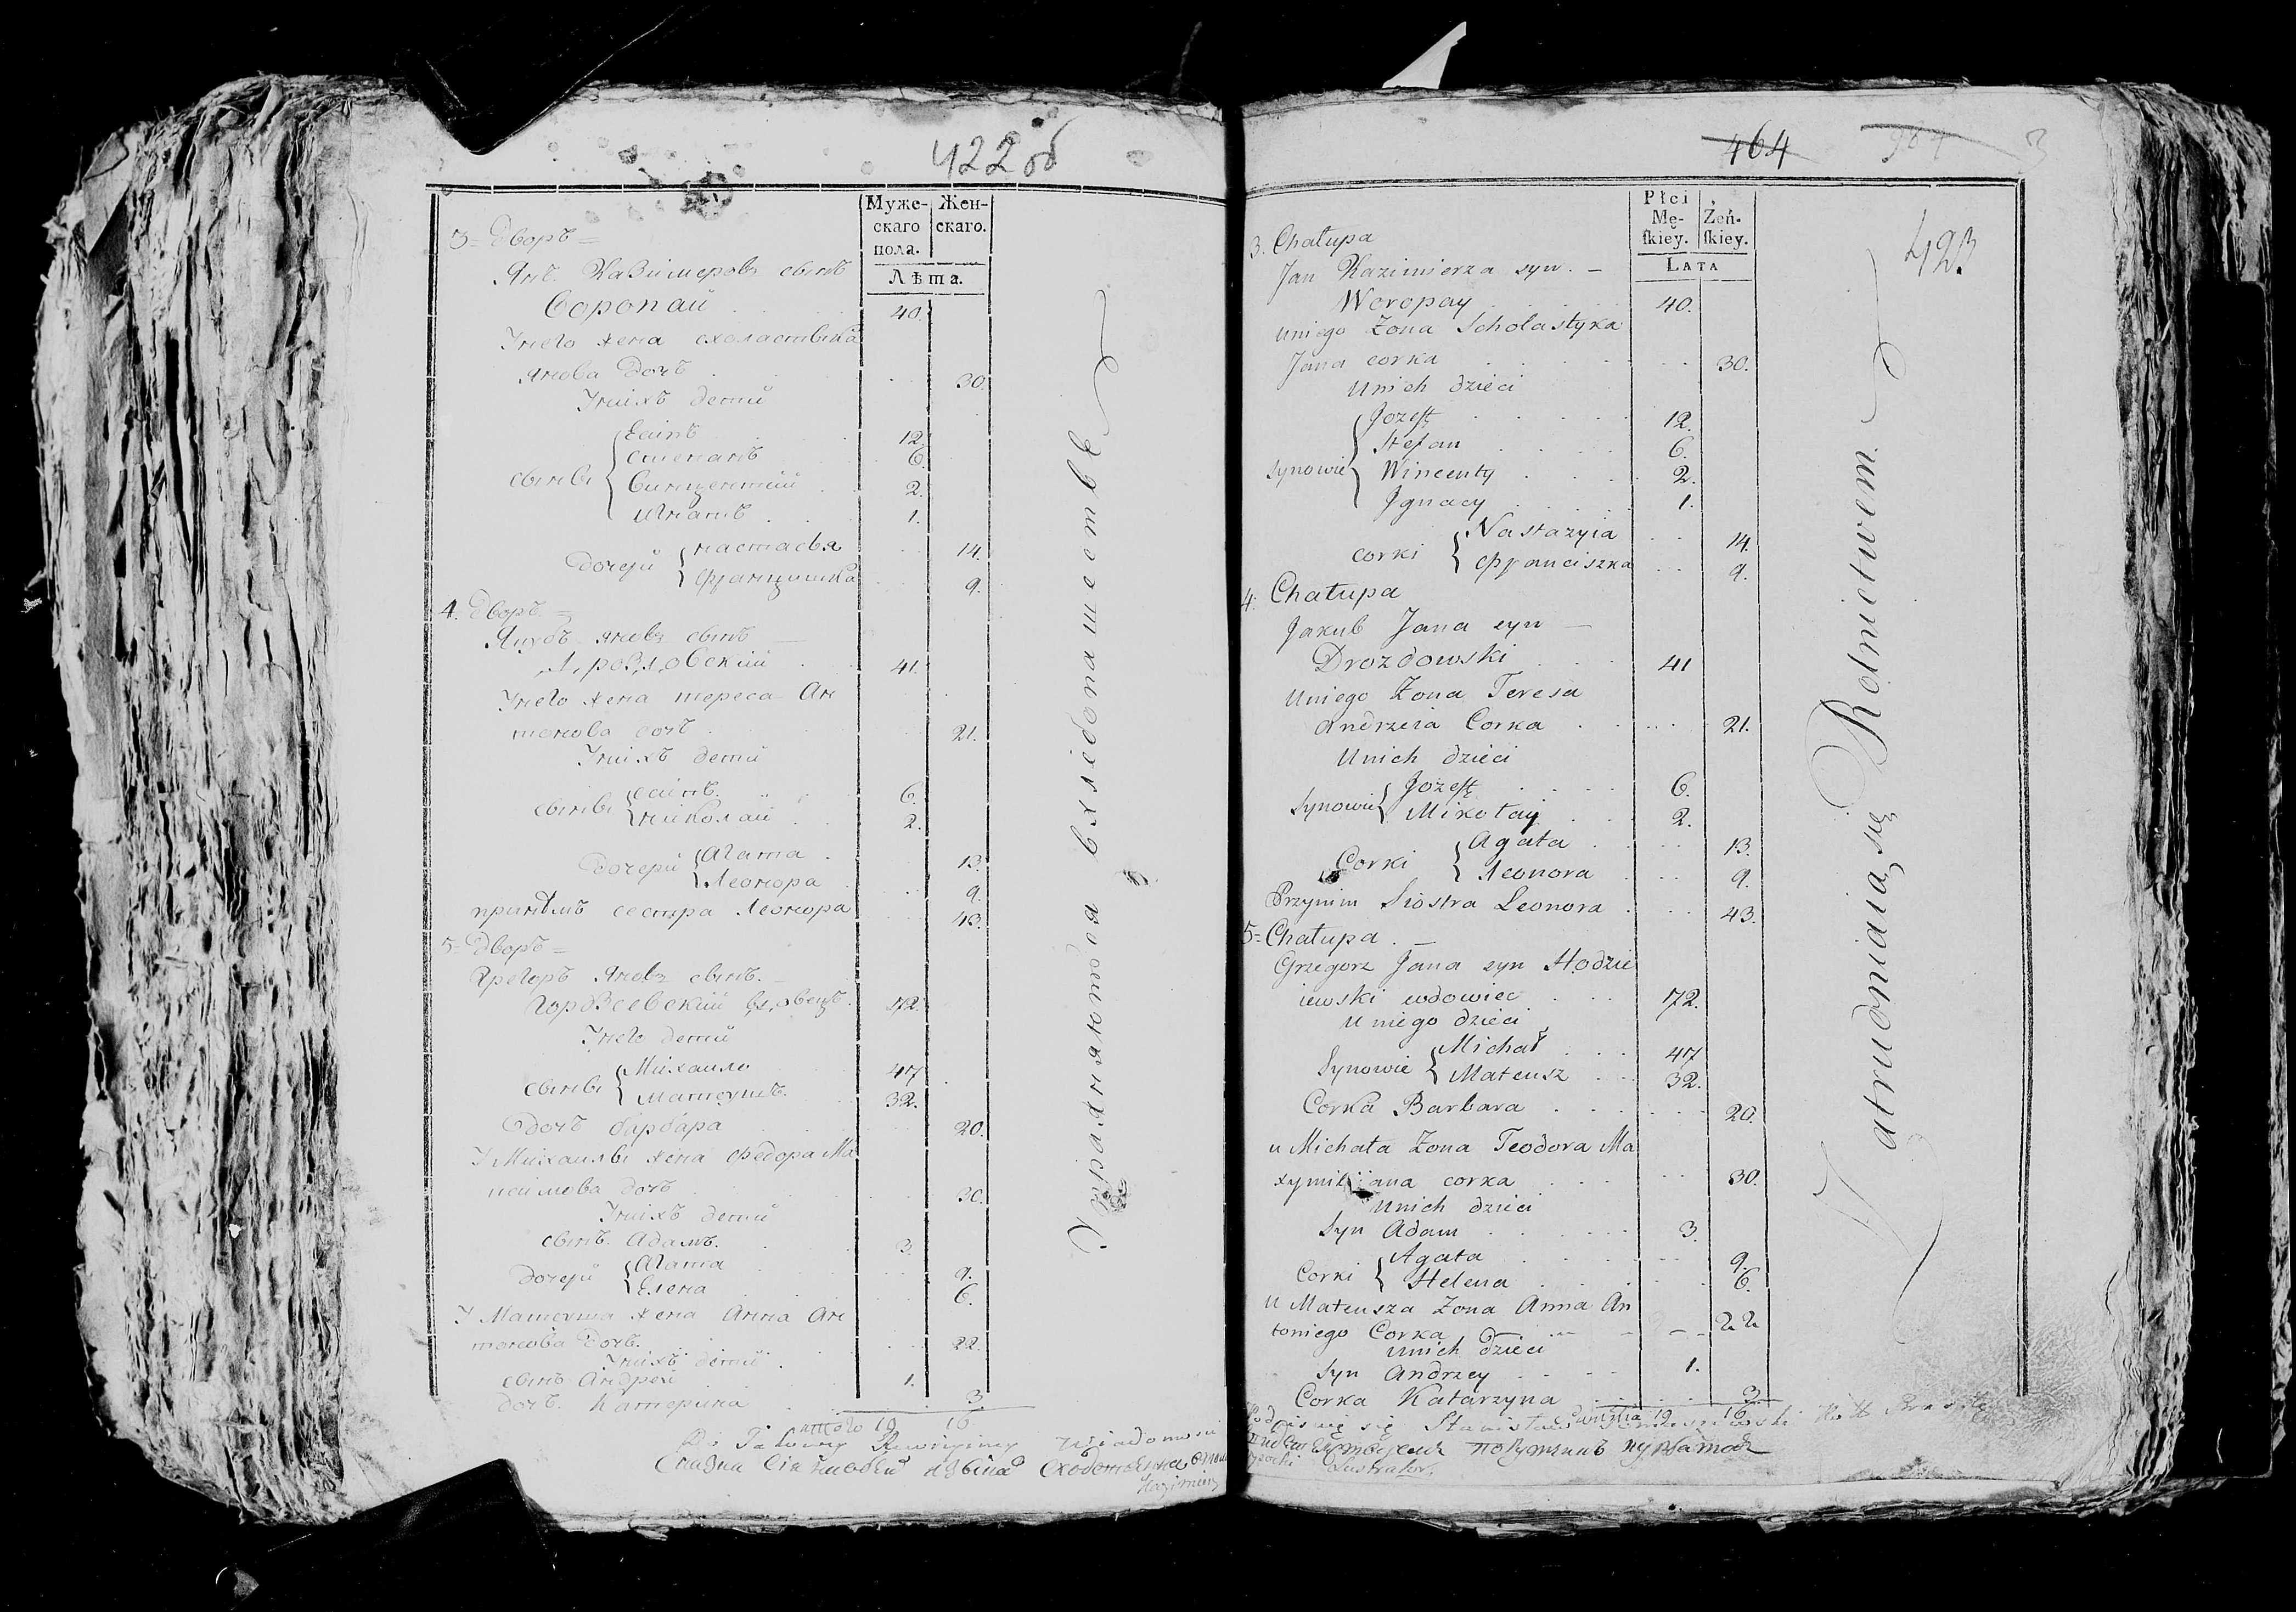 422 об
Муже-
скаго
пола.
Жен-
скаго.
Лѣта.
3 = Дворъ =
Янъ Казимеровъ сынъ
Воропай 40.
Унего жена схоластыка
янова дочъ 30.
Унихъ дети
Сыны
Есипъ 12.
степанъ 6.
винцентий 2.
Игнатъ 1.
Дочери
настасья 14.
францишка 9.
4. Дворъ =
Якубъ яновъ сынъ
Дроздовский 41.
Унего жена тереса Ан
тонова дочъ 21.
Унихъ дети
сыны
есипъ 6.
николай 2.
Дочери
Агата 13.
Леонора 9.
сестра Леонора 43.
5 = Дворъ =
Грегоръ яновъ сынъ
72.
Унего дети
сыны
Михаило 47
Матеушъ 32.
Дочъ барбара 20.
У Михаилы жена федора Ма
дочъ 30.
Унихъ дети
сынъ Адамъ 3.
дочери
Агата 9.
Елена 6.
У Матеуша жена Анна Ан
тонова дочъ. 22.
Унихъ дети
сынъ Андрей 1.
дочъ Катерина 3.
итого 19 16
Упражняются в хлебопашестве
464
423
Płci
Mę-
ſkiey.
Żeń-
ſkiey.
LATA
3. Chałupa
Jan Kazimierza syn. –
Woropay 40.
uniego Żona Scholastyka
Jana corka 30.
Unich dzieci
synowie
Jozeff 12.
Stefan 6.
Wincenty 2.
Jgnacy 1.
corki
Nastazyia 14.
Franciszka 9.
4. Chałupa
Jakub Jana syn –
Drozdowski 41
Uniego Żona Teresa
Andrzeia Corka 21.
Unich dzieci
Synowie
Jozeff 6.
Mikołay 2.
Corki
Agata 13.
Leonora 9.
Przynim Siostra Leonora 43.
5 = Chałupa. –
Grzegorz Jana syn Hodzie
iewski wdowiec 72.
Uniego dzieci
Synowie
Michał 47
Mateusz 32.
Corka Barbara 20.
u Michała Żona Teodora Ma
xymiliiana corka 30.
Unich dzieci
Syn Adam 3.
Corki
Agata 9.
Helena 6.
u Mateusza Żona Anna An
toniego Corka 22
Unich dzieci
Syn Andrzey 1.
Corka Katarzyna 3.
Summa 19 16
Zatrudniaią się Rolnictwem
Lustrator.